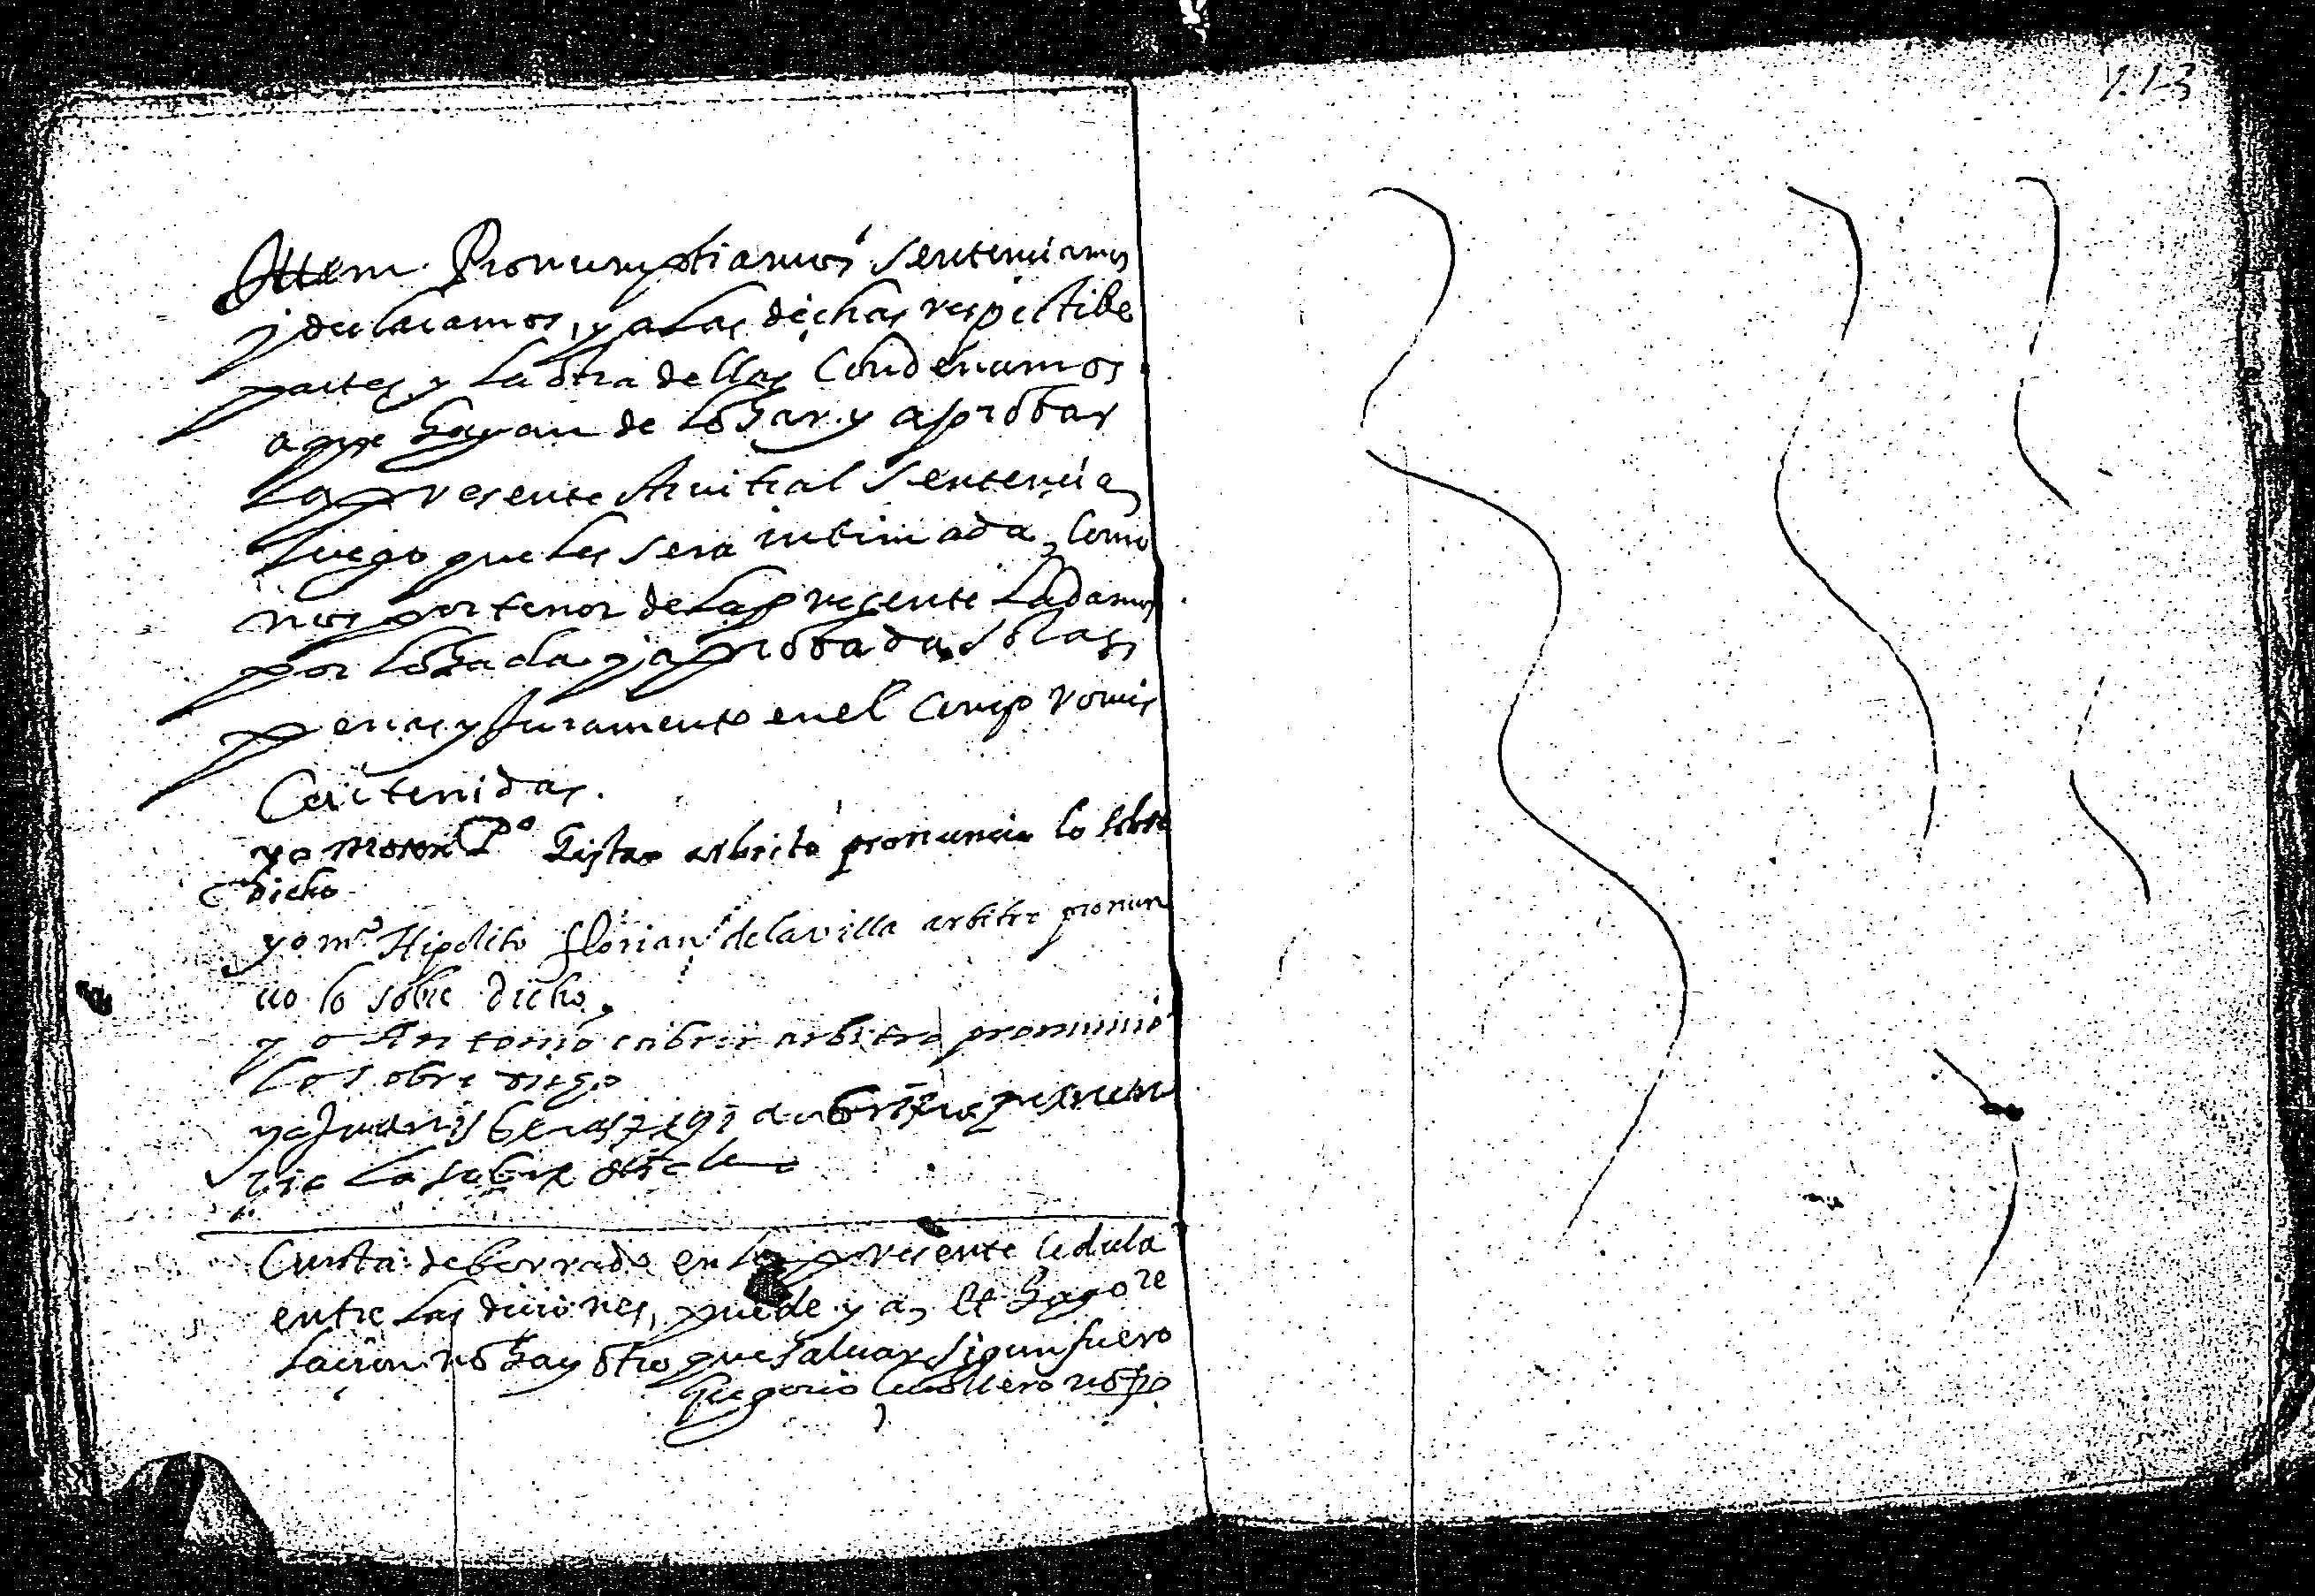 Ittem Pronumptiamos sentenciamos
y declaramos, y a las dichas respectibe
partes y la otra dellas Condenamos
a que hayan de lohar y aprobar
la presente Arbitral sentencia
luego que les sera intimada, como
nos por tenor de la presente la damos
por lohada y aprobada so las
penas y Juramento en el Compromis
Contenidas.
yo mosen P.º arbitro pronuncio lo sobre
dicho
yo m.º Hipolito florian de la villa arbitro pronun
cio lo sobre dicho,
yo Antonio cabrer arbitro pronuncio
lo sobre digo
yo Juan arbitro pronun
cio lo sobre dicho
Consta de borrado en la presente cedula
entre las diciones, puede y a, Et hago re
lacion no hay otro que saluar sigun fuero
Gregorio not.º